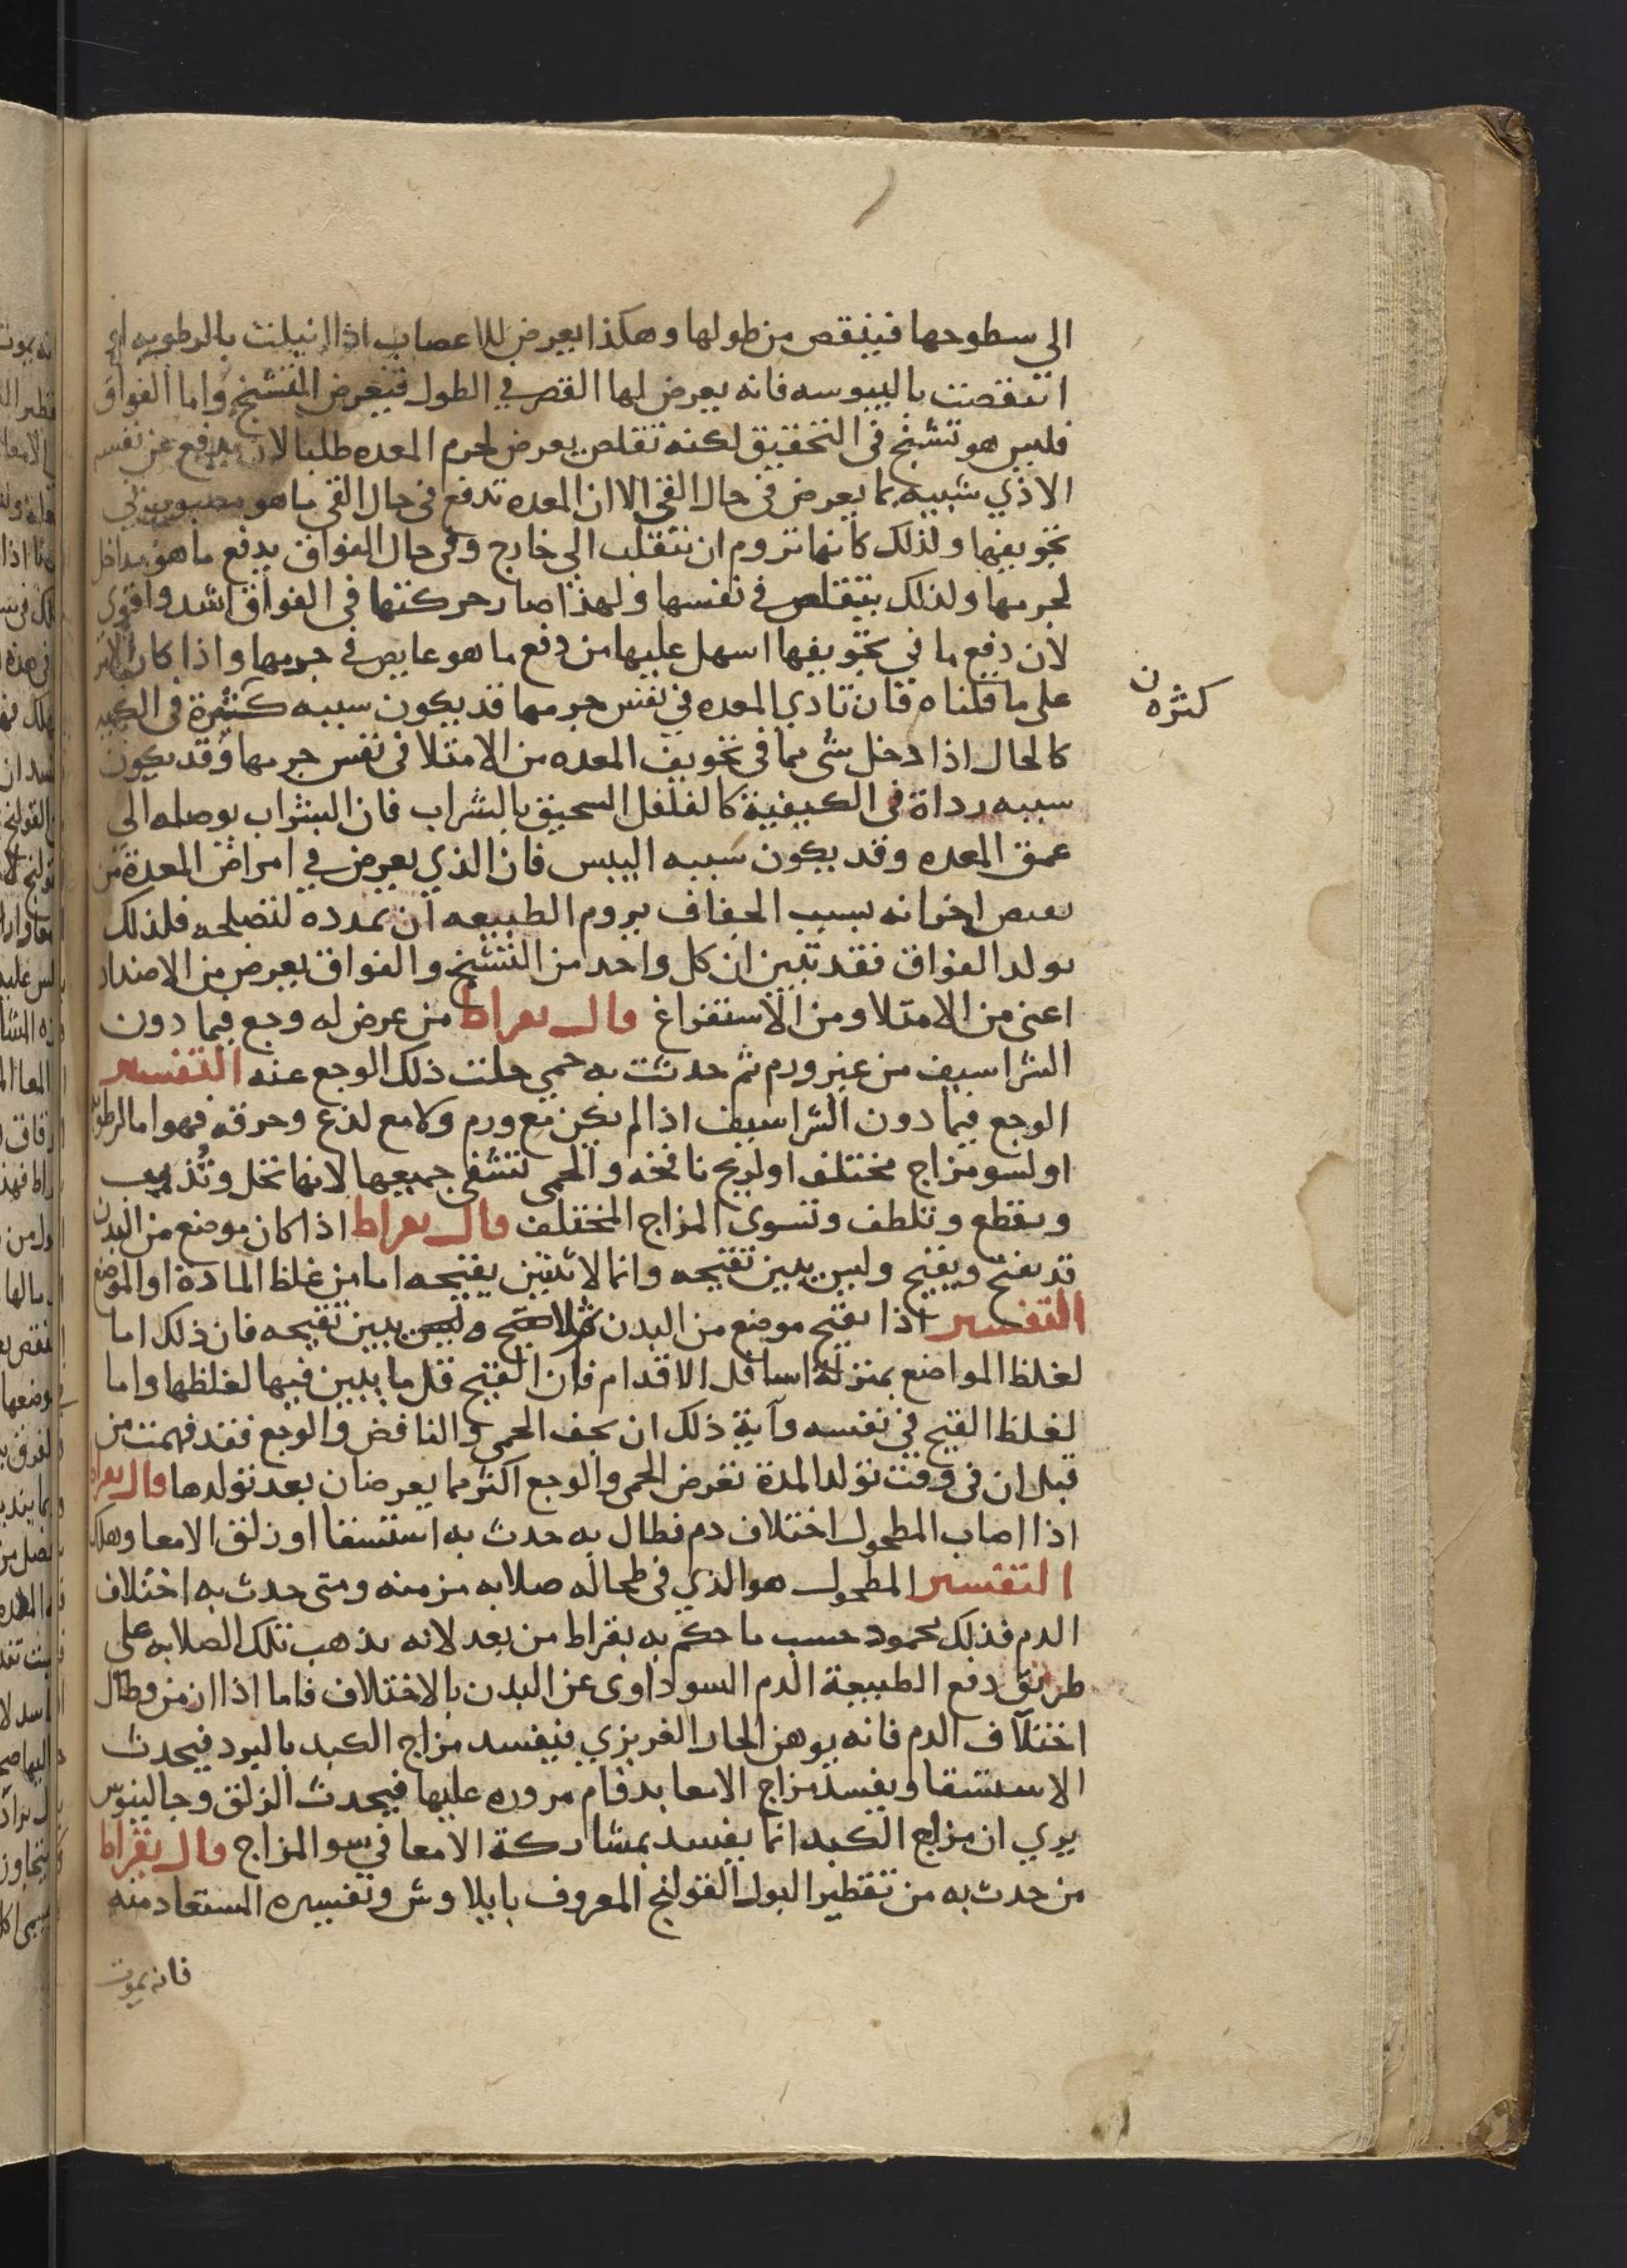 الي سطوحها فينقص من طولها وهكذا يعرض للاعصاب اذا انبلت بالرطوبه او
انتقصت باليبوسه فانه يعرض لها القصر في الطول فيعرض التشنج واما الفواق
فليس هو تشنج في التحقيق لكنه تقلص يعرض لجرم المعده طلبا لان يدفع عن نفسه
الاذي شبيه بما يعرض في حال القي الا ان المعده تدفع في حال القي ما هو مصبوب في
تجويفها ولذلك كانها تروم ان تنقلب الي خارج وفي حال الفواق يدفع ما هو مداخل
لجرمها ولذلك يتقلص في نفسها ولهذا صار حركتها في الفواق اشد واقوي
لان دفع ما في تجويفها اسهل عليها من دفع ما هو غايص في جرمها واذا كان الامر
على ما قلناه فان تاذي المعده في نفس جرمها قد يكون سببه كثيرة في الكميه
كثره ن
كالحال اذا دخل شى مما في تجويف المعده من الامتلا في نفس جرمها وقد يكون
سببه رداة في الكيفية كالفلفل السحيق بالشراب فان الشراب يوصله الي
عمق المعده وقد يكون سببه اليبس فان الذي يعرض في امراض المعدة من
بعض اخوانه بسبب الجفاف يروم الطبيعه ان تمدده لتصلحه فلذلك
يولد الفواق فقد تبين ان كل واحد من التشنج والفواق يعرض من الاضداد
اعنى من الامتلا ومن الاستفراغ قال بقراط من عرض له وجع فيما دون
الشراسيف من غير ورم ثم حدثت به حمي حلت ذلك الوجع عنه التفسير
الوجع فيما دون الشراسيف اذا لم يكن مع ورم ولا مع لذع وحرقه فهو اما لرطوبه
او لسو مزاج مختلف او لريح نافخه والحمى تشفي جميعها لانها تحل وتذيب
وتقطع وتلطف وتسوى المزاج المختلف قال بقراط اذا كان موضع من البدن
قد يفتح ويقيح وليس يبين تقيحه وانما لا يتبين بقيحه اما من غلظ المادة او الموضع
التفسير اذا يقيح موضع من البدن وليس يبين تقيحه فان ذلك اما
لغلظ المواضع بمنزلة اسافل الاقدام فان القيح قل ما يبين فيها لغلظها واما
لغلظ القيح في نفسه وآية ذلك ان يخف الحمى والنافض والوجع فقد فهمت من
قبل ان في وقت تولد المدة تعرض الحمى والوجع اكثر مما يعرضان بعد تولدها قال بقراط
اذا اصاب المطحول اختلاف دم فطال به حدث به استسقا او زلق الامعا وهلك
التفسير المطحول هو الذي في طحاله صلابه مزمنه ومتى حدث به اختلاف
الدم فذلك محمود حسب ما حكم به بقراط من بعد لانه يذهب تلك الصلابه على
طريق دفع الطبيعة الدم السوداوى عن البدن بالاختلاف فاما اذا ازمن وطال
اختلاف الدم فانه يوهن الحار الغريزي فيفسد مزاج الكبد بالبرد فيحدث
الاستسقا ويفسد مزاج الامعا بدوام مروره عليها فيحدث الزلق وجالينوس
يري ان مزاج الكبد انما يفسد بمشاركة الامعا في سو المزاج قال بقراط
من حدث به من تقطير البول القولنج المعروف بايلاوش وتفسيره المستعاد منه
فانه يموت